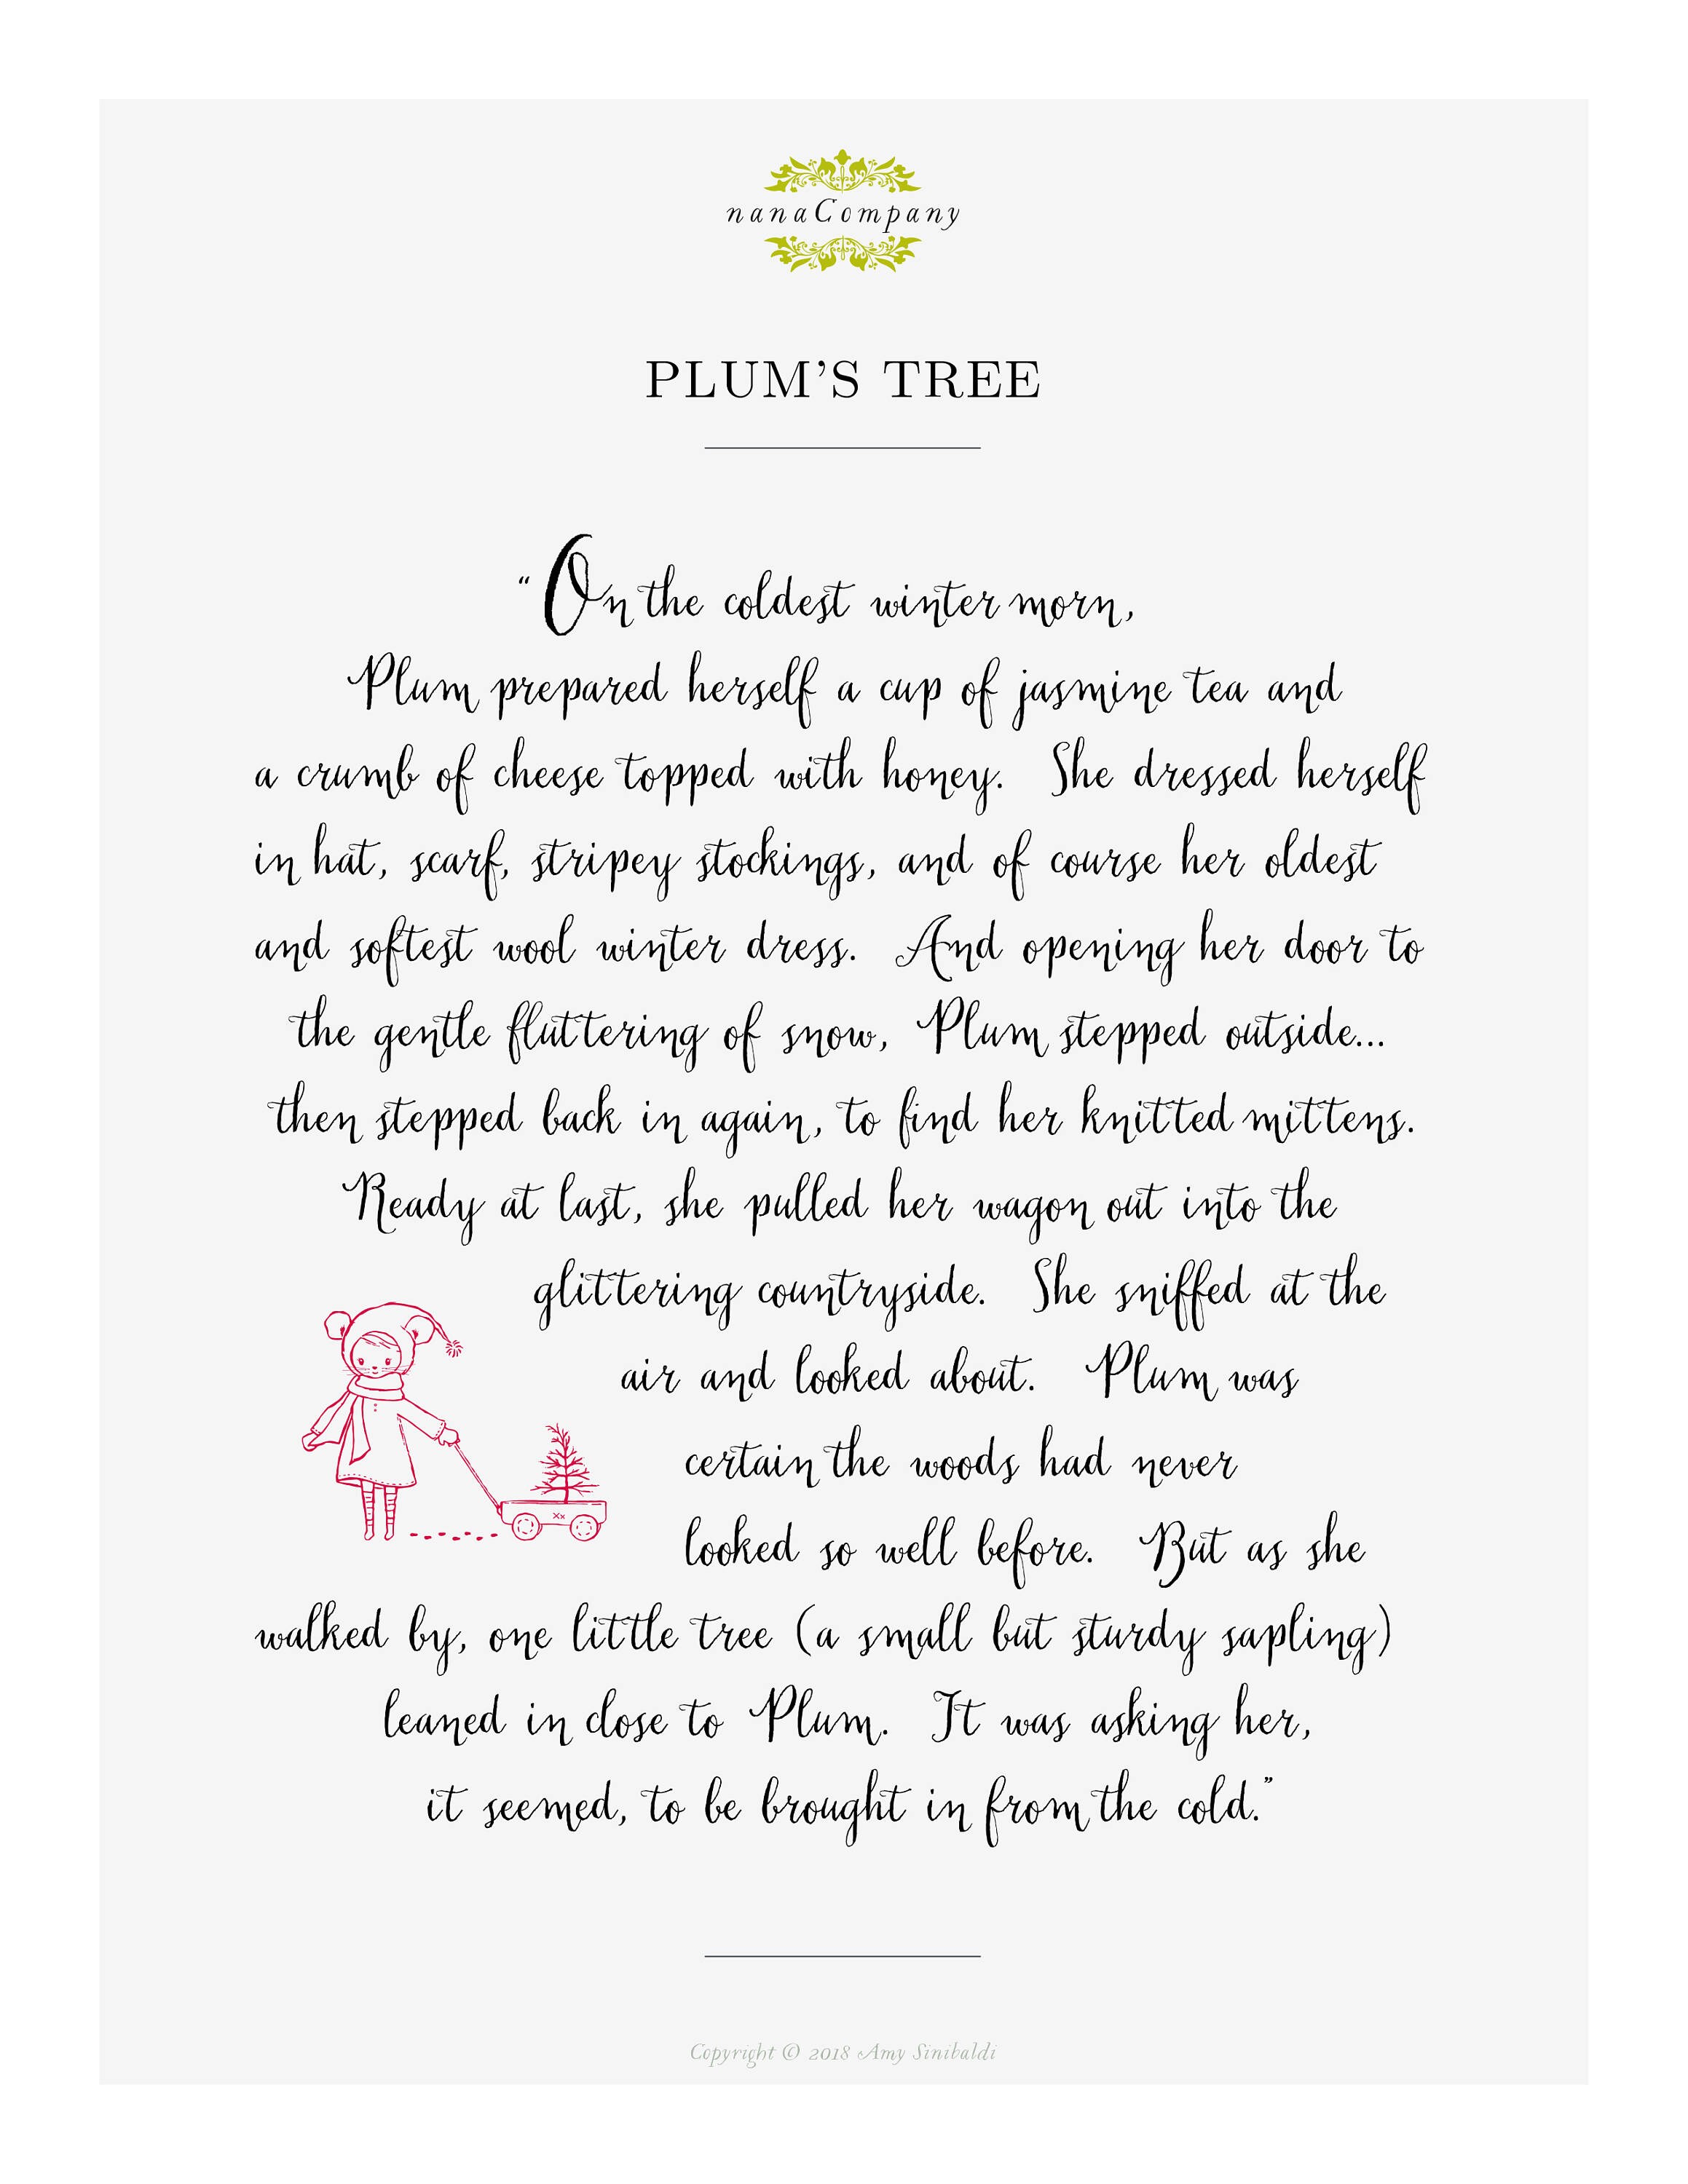 nanaCompany
PLUM’S TREE
“On the coldest winter morn,
Plum prepared herself a cup of jasmine tea and
a crumb of cheese topped with honey. She dressed herself
in hat, scarf, stripey stockings, and of course her oldest
and softest wool winter dress. And opening her door to
the gentle fluttering of snow, Plum stepped outside...
then stepped back in again, to find her knitted mittens.
Ready at last, she pulled her wagon out into the
glittering countryside. She sniffed at the
air and looked about. Plum was
certain the woods had never
looked so well before. But as she
Xx
walked by, one little tree (a small but sturdy sapling)
leaned in close to Plum. It was asking her,
it seemed, to be brought in from the cold.”
Copyright © 2018 Amy Sinibaldi